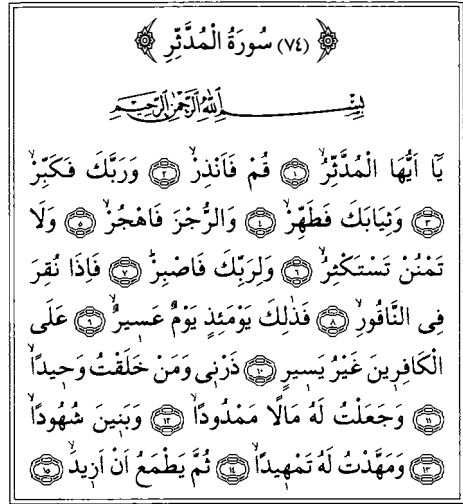 (٧٤) سُورَةُ الْمُدَّثِّرِ
بِسْمِ اللّٰهِ الرَّحْمٰنِ الرَّحِيمِ
يَٓا اَيُّهَا الْمُدَّثِّرُۙ ﴿١﴾ قُمْ فَاَنْذِرْۙ ﴿٢﴾ وَرَبَّكَ فَكَبِّرْۙ
﴿٣﴾ وَثِيَابَكَ فَطَهِّرْۙ ﴿٤﴾ وَالرُّجْزَ فَاهْجُرْۙ ﴿٥﴾ وَلَا
تَمْنُنْ تَسْتَكْثِرُۙ ﴿٦﴾ وَلِرَبِّكَ فَاصْبِرْۜ ﴿٧﴾ فَاِذَا نُقِرَ
فِى النَّاقُورِۙ ﴿٨﴾ فَذٰلِكَ يَوْمَئِذٍ يَوْمٌ عَسِيرٌۙ ﴿٩﴾ عَلَى
الْكَافِرِينَ غَيْرُ يَسِيرٍ ﴿١٠﴾ ذَرْنِى وَمَنْ خَلَقْتُ وَحِيدًاۙ
﴿١١﴾ وَجَعَلْتُ لَهُ مَالًا مَمْدُودًاۙ ﴿١٢﴾ وَبَنِينَ شُهُودًاۙ
﴿١٣﴾ وَمَهَّدْتُ لَهُ تَمْهِيدًاۙ ﴿١٤﴾ ثُمَّ يَطْمَعُ اَنْ اَزِيدَۙ ﴿١٥﴾